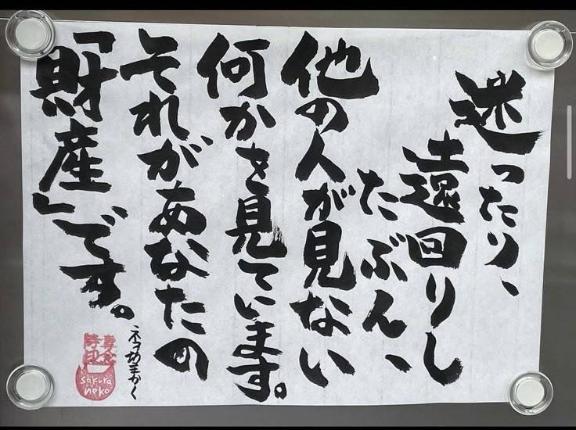 迷ったり、
遠回りし
たぶん、
他の人が見ない
何かを見ています。
それがあなたの
「財産」です。
ネコの手かく
sakura
neko